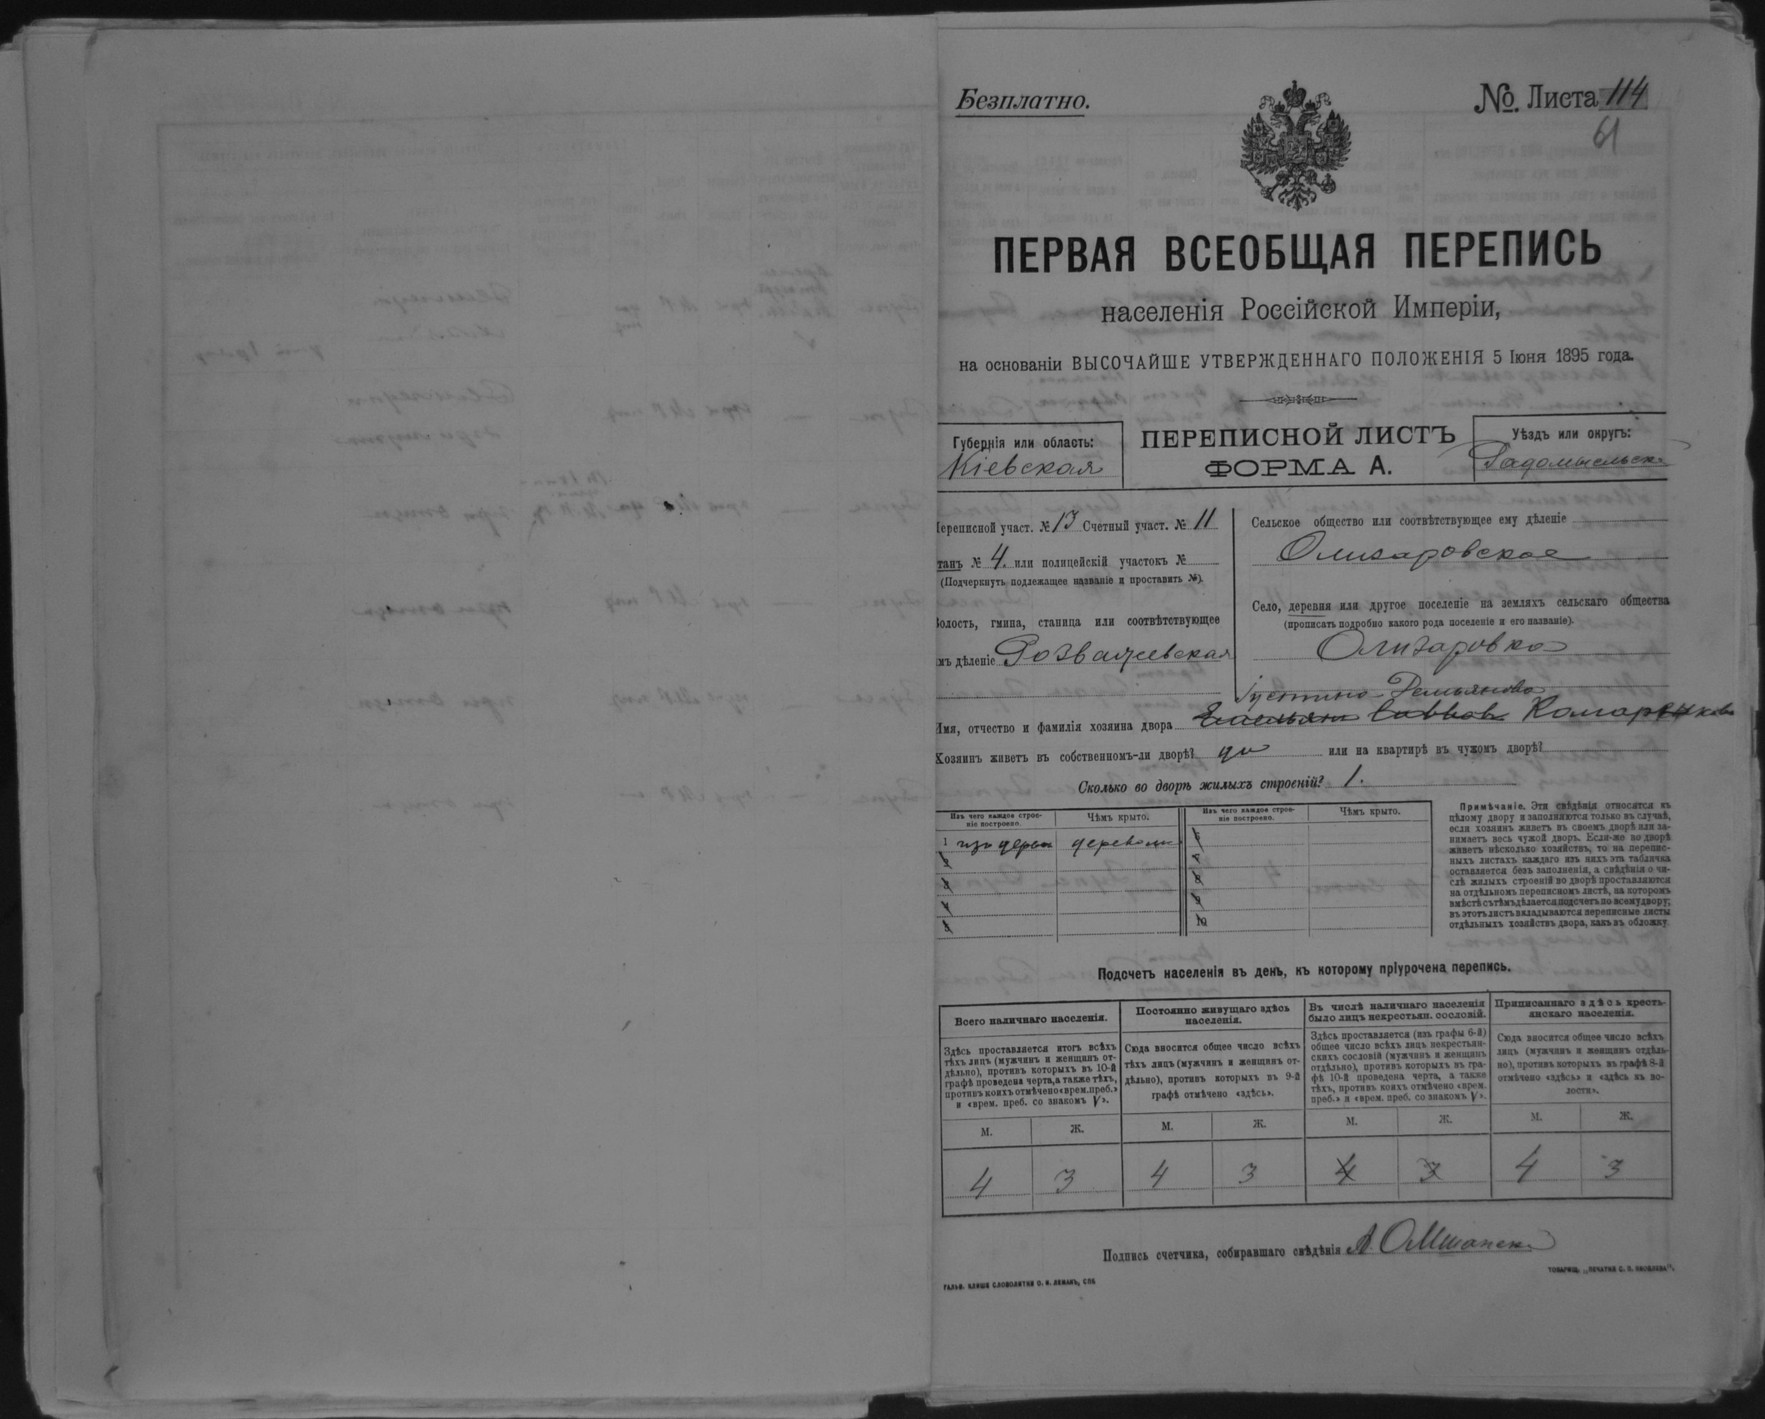 Безплатно.
№ Листа 114
61
ПЕРВАЯ ВСЕОБЩАЯ ПЕРЕПИСЬ
населенія Россійской Имперіи,
на основаніи ВЫСОЧАЙШЕ УТВЕРЖДЕННАГО ПОЛОЖЕНІЯ 5 Іюня 1895 года.
Губернія или область:
Кіевская
ПЕРЕПИСНОЙ ЛИСТЪ
ФОРМА А.
Уѣздъ или округъ:
Радомысльск
Переписной участ. № 13 Счетный участ. № 11
танъ № 4. или полицейскій участокъ №
(Подчеркнуть подлежащее названіе и проставить №).
Волость, гмина, станица или соотвѣтствующее
мъ дѣленіе Розважевская
Сельское общество или соотвѣтствующее ему дѣленіе
Олизаровское
Село, деревня или другое поселеніе на земляхъ сельскаго общества
(прописать подробно какого рода поселеніе и его названіе).
Олизаровка
Демьянова
Имя, отчество и фамилія хозяина двора
Хозяинъ живетъ въ собственномъ-ли дворѣ? да или на квартирѣ въ чужомъ дворѣ?
Сколько во дворѣ жилыхъ строеній? 1.
Изъ чего каждое строе-
ніе построено.
Чѣмъ крыто.
Изъ чего каждое строе-
ніе построено.
Чѣмъ крыто.
1 изъ дерева деревомъ
2
3
4
5
6
7
8
9
10
Примѣчаніе. Эти свѣдѣнія относятся къ
цѣлому двору и заполняются только въ случаѣ,
если хозяинъ живетъ въ своемъ дворѣ или за-
нимаетъ весь чужой дворъ. Если-же во дворѣ
живетъ нѣсколько хозяйствъ, то на перепис-
ныхъ листахъ каждаго изъ нихъ эта табличка
оставляется безъ заполненія, а свѣдѣнія о чи-
слѣ жилыхъ строеній во дворѣ проставляются
на отдѣльномъ переписномъ листѣ, на которомъ
вмѣстѣ съ тѣмъ дѣлается подсчетъ по всему двору;
въ этотъ листъ вкладываются переписные листы
отдѣльныхъ хозяйствъ двора, какъ въ обложку.
Подсчетъ населенія въ день, къ которому пріурочена перепись.
Всего наличнаго населенія.
Здѣсь проставляется итогъ всѣхъ
тѣхъ лицъ (мужчинъ и женщинъ от-
дѣльно), противъ которыхъ въ 10-й
графѣ проведена черта, а также тѣхъ,
противъ коихъ отмѣчено «врем. преб.»
и «врем. преб. со знакомъ V».
Постоянно живущаго здѣсь
населенія.
Сюда вносится общее число всѣхъ
тѣхъ лицъ (мужчинъ и женщинъ от-
дѣльно), противъ которыхъ въ 9-й
графѣ отмѣчено «здѣсь».
Въ числѣ наличнаго населенія
было лицъ некрестьян. сословій.
Здѣсь проставляется (изъ графы 6-й)
общее число всѣхъ лицъ некрестьян-
скихъ сословій (мужчинъ и женщинъ
отдѣльно), противъ которыхъ въ гра-
фѣ 10-й проведена черта, а также
тѣхъ, противъ коихъ отмѣчено «врем.
преб.» и «врем. преб. со знакомъ V».
Приписаннаго здѣсь кресть-
янскаго населенія.
Сюда вносится общее число всѣхъ
лицъ (мужчинъ и женщинъ отдѣль-
но), противъ которыхъ въ графѣ 8-й
отмѣчено «здѣсь» и «здѣсь въ во-
лости».
М. Ж. М. Ж. М. Ж. М. Ж.
4 3 4 3 4 3 4 3
Подпись счетчика, собиравшаго свѣдѣнія
ГАЛЬВ. КЛИШЕ СЛОВОЛИТНИ О. И. ЛЕМАНЪ, СПБ
ТОВАРИЩ. „ПЕЧАТНЯ С. П. ЯКОВЛЕВА".